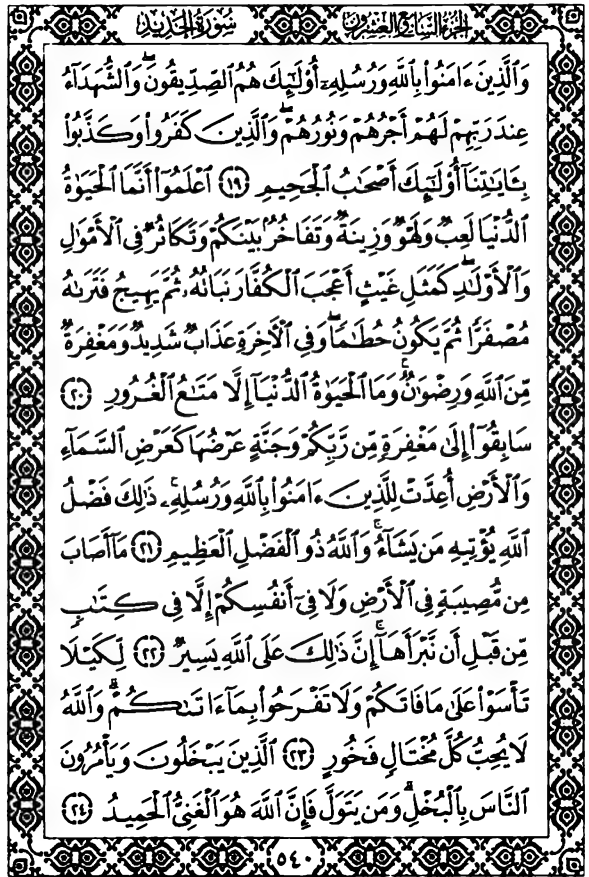 سُورَةُ الحَدِيدِ
الجُزْءُ السَّابِعُ وَالعِشْرُونَ
وَٱلَّذِينَ ءَامَنُوا۟ بِٱللَّهِ وَرُسُلِهِۦٓ أُو۟لَـٰٓئِكَ هُمُ ٱلصِّدِّيقُونَ ۖ وَٱلشُّهَدَآءُ
عِندَ رَبِّهِمْ لَهُمْ أَجْرُهُمْ وَنُورُهُمْ ۖ وَٱلَّذِينَ كَفَرُوا۟ وَكَذَّبُوا۟
بِـَٔايَـٰتِنَآ أُو۟لَـٰٓئِكَ أَصْحَـٰبُ ٱلْجَحِيمِ ١٩ ٱعْلَمُوٓا۟ أَنَّمَا ٱلْحَيَوٰةُ
ٱلدُّنْيَا لَعِبٌ وَلَهْوٌ وَزِينَةٌ وَتَفَاخُرٌۢ بَيْنَكُمْ وَتَكَاثُرٌ فِى ٱلْأَمْوَٰلِ
وَٱلْأَوْلَـٰدِ ۖ كَمَثَلِ غَيْثٍ أَعْجَبَ ٱلْكُفَّارَ نَبَاتُهُۥ ثُمَّ يَهِيجُ فَتَرَىٰهُ
مُصْفَرًّا ثُمَّ يَكُونُ حُطَـٰمًا ۖ وَفِى ٱلْـَٔاخِرَةِ عَذَابٌ شَدِيدٌ وَمَغْفِرَةٌ
مِّنَ ٱللَّهِ وَرِضْوَٰنٌ ۚ وَمَا ٱلْحَيَوٰةُ ٱلدُّنْيَآ إِلَّا مَتَـٰعُ ٱلْغُرُورِ ٢٠
سَابِقُوٓا۟ إِلَىٰ مَغْفِرَةٍ مِّن رَّبِّكُمْ وَجَنَّةٍ عَرْضُهَا كَعَرْضِ ٱلسَّمَآءِ
وَٱلْأَرْضِ أُعِدَّتْ لِلَّذِينَ ءَامَنُوا۟ بِٱللَّهِ وَرُسُلِهِۦ ۚ ذَٰلِكَ فَضْلُ
ٱللَّهِ يُؤْتِيهِ مَن يَشَآءُ ۚ وَٱللَّهُ ذُو ٱلْفَضْلِ ٱلْعَظِيمِ ٢١ مَآ أَصَابَ
مِن مُّصِيبَةٍ فِى ٱلْأَرْضِ وَلَا فِىٓ أَنفُسِكُمْ إِلَّا فِى كِتَـٰبٍ
مِّن قَبْلِ أَن نَّبْرَأَهَآ ۚ إِنَّ ذَٰلِكَ عَلَى ٱللَّهِ يَسِيرٌ ٢٢ لِّكَيْلَا
تَأْسَوْا۟ عَلَىٰ مَا فَاتَكُمْ وَلَا تَفْرَحُوا۟ بِمَآ ءَاتَىٰكُمْ ۗ وَٱللَّهُ
لَا يُحِبُّ كُلَّ مُخْتَالٍ فَخُورٍ ٢٣ ٱلَّذِينَ يَبْخَلُونَ وَيَأْمُرُونَ
ٱلنَّاسَ بِٱلْبُخْلِ ۗ وَمَن يَتَوَلَّ فَإِنَّ ٱللَّهَ هُوَ ٱلْغَنِىُّ ٱلْحَمِيدُ ٢٤
٥٤٠